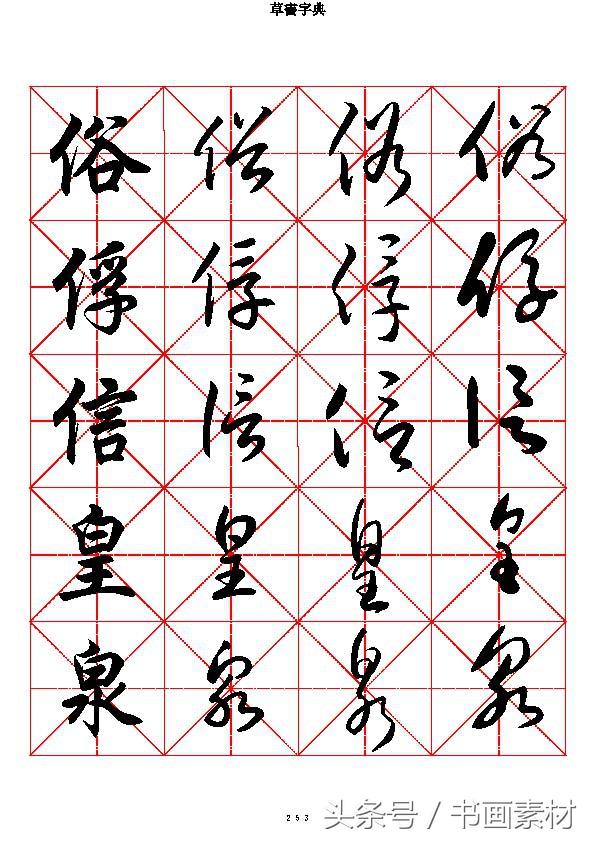 草書字典
俗 俗 俗 俗
俘 俘 俘 俘
信 信 信 信
皇 皇 皇 皇
泉 泉 泉 泉
253
头条号 / 书画素材